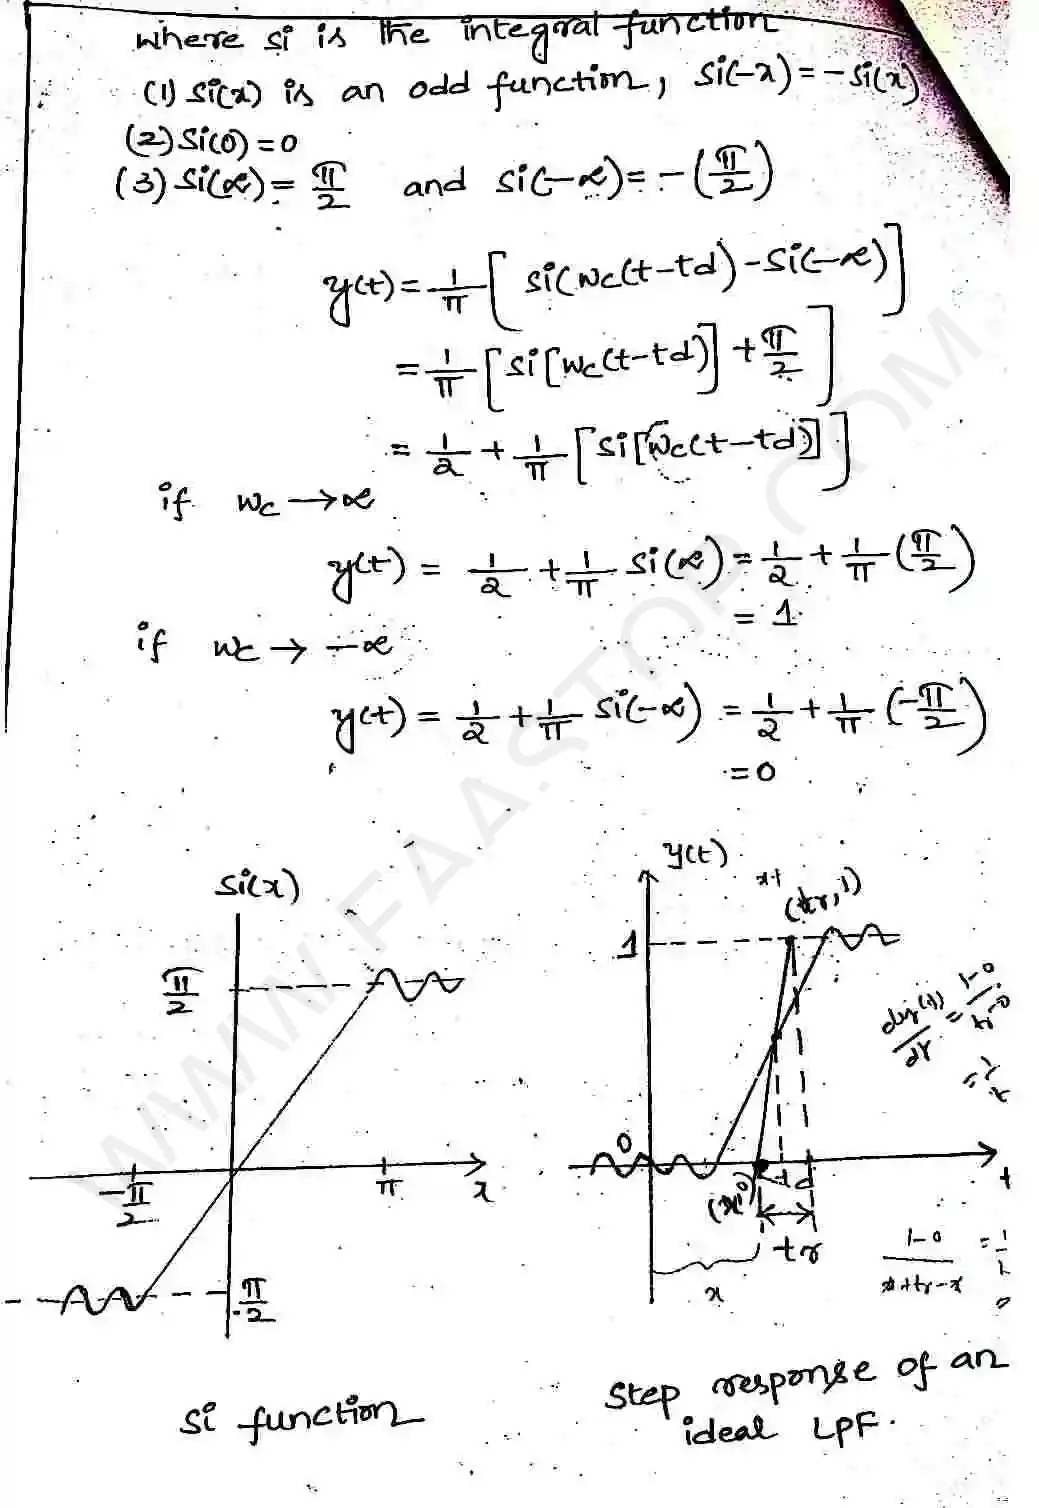 where si is the integral function
(1) si(x) is an odd function, si(-x) = -si(x)
(2) si(0) = 0
(3) si(∞) = π/2 and si(-∞) = -(π/2)
y(t) = 1/π [si(wc(t-td) - si(-∞)]
= 1/π [si[wc(t-td)] + π/2]
= 1/2 + 1/π [si[wc(t-td)]]
if wc → ∞
y(t) = 1/2 + 1/π si(∞) = 1/2 + 1/π (π/2)
= 1
if wc → -∞
y(t) = 1/2 + 1/π si(-∞) = 1/2 + 1/π (-π/2)
= 0
si(x)
π/2
-π/2
π
x
-π/2
si function
y(t)
x+
(tr, 1)
1
0
td
tr
x
t
1-0
x+tr-x
step response of an
ideal LPF.
WWW.FAASTOP.COM